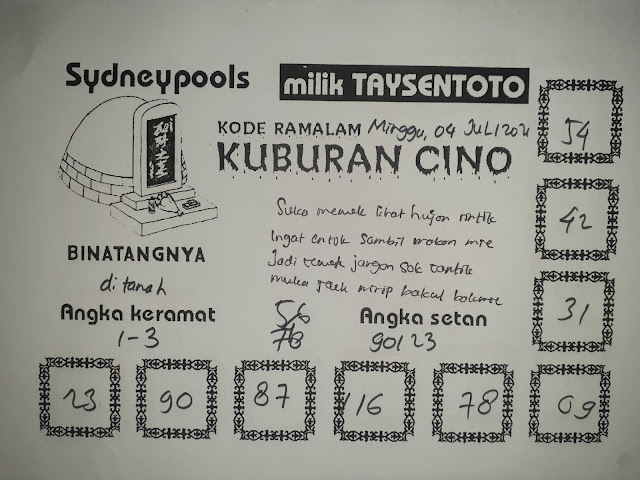 Sydneypools
milik TAYSENTOTO
KODE RAMALAM Minggu, 04 JULI 2021
KUBURAN CINO
54
42
31
Suka memek lihat hujan rintik
Ingat entok sambil makan mie
Jadi cewek jangan sok cantik
muka jaek mirip bakul
BINATANGNYA
di tanah
Angka keramat
1-3
56
78
Angka setan
90123
23
90
87
116
78
09